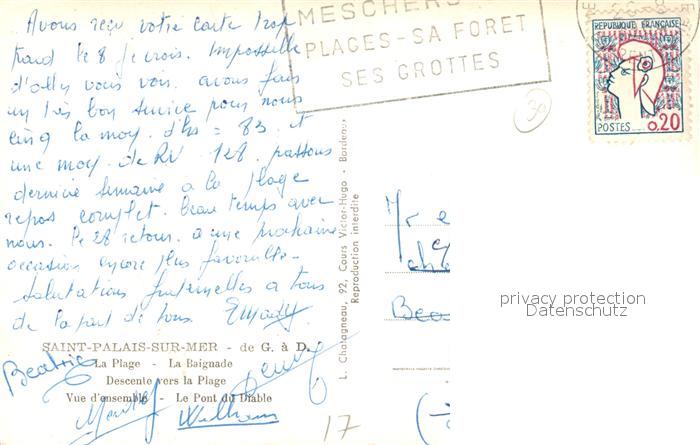 Avons reçu votre carte trop
tard le 8 je crois. Impossible
d'aller vous voir. avons fait
un très bon service pour nous
cinq la moy. d'hs = 83. et
une moy. de RV 128. passons
dernière semaine a la plage
repos complet. beau temps avec
nous. le 28 retour. a une prochaine
occasion encore plus favorable.
Salutations fraternelles a tous
de la part de tous.
SAINT-PALAIS-SUR-MER - de G. à D.
La Plage - La Baignade
Descente vers la Plage
Vue d'ensemble - Le Pont du Diable
Beatrice
William
17
L. Chatagneau, 92, Cours Victor-Hugo - Bordeaux
Reproduction interdite
MESCHERS
PLAGES - SA FORET
SES GROTTES
30
REPUBLIQUE FRANÇAISE
POSTES 0,20
Mr e
privacy protection
Datenschutz